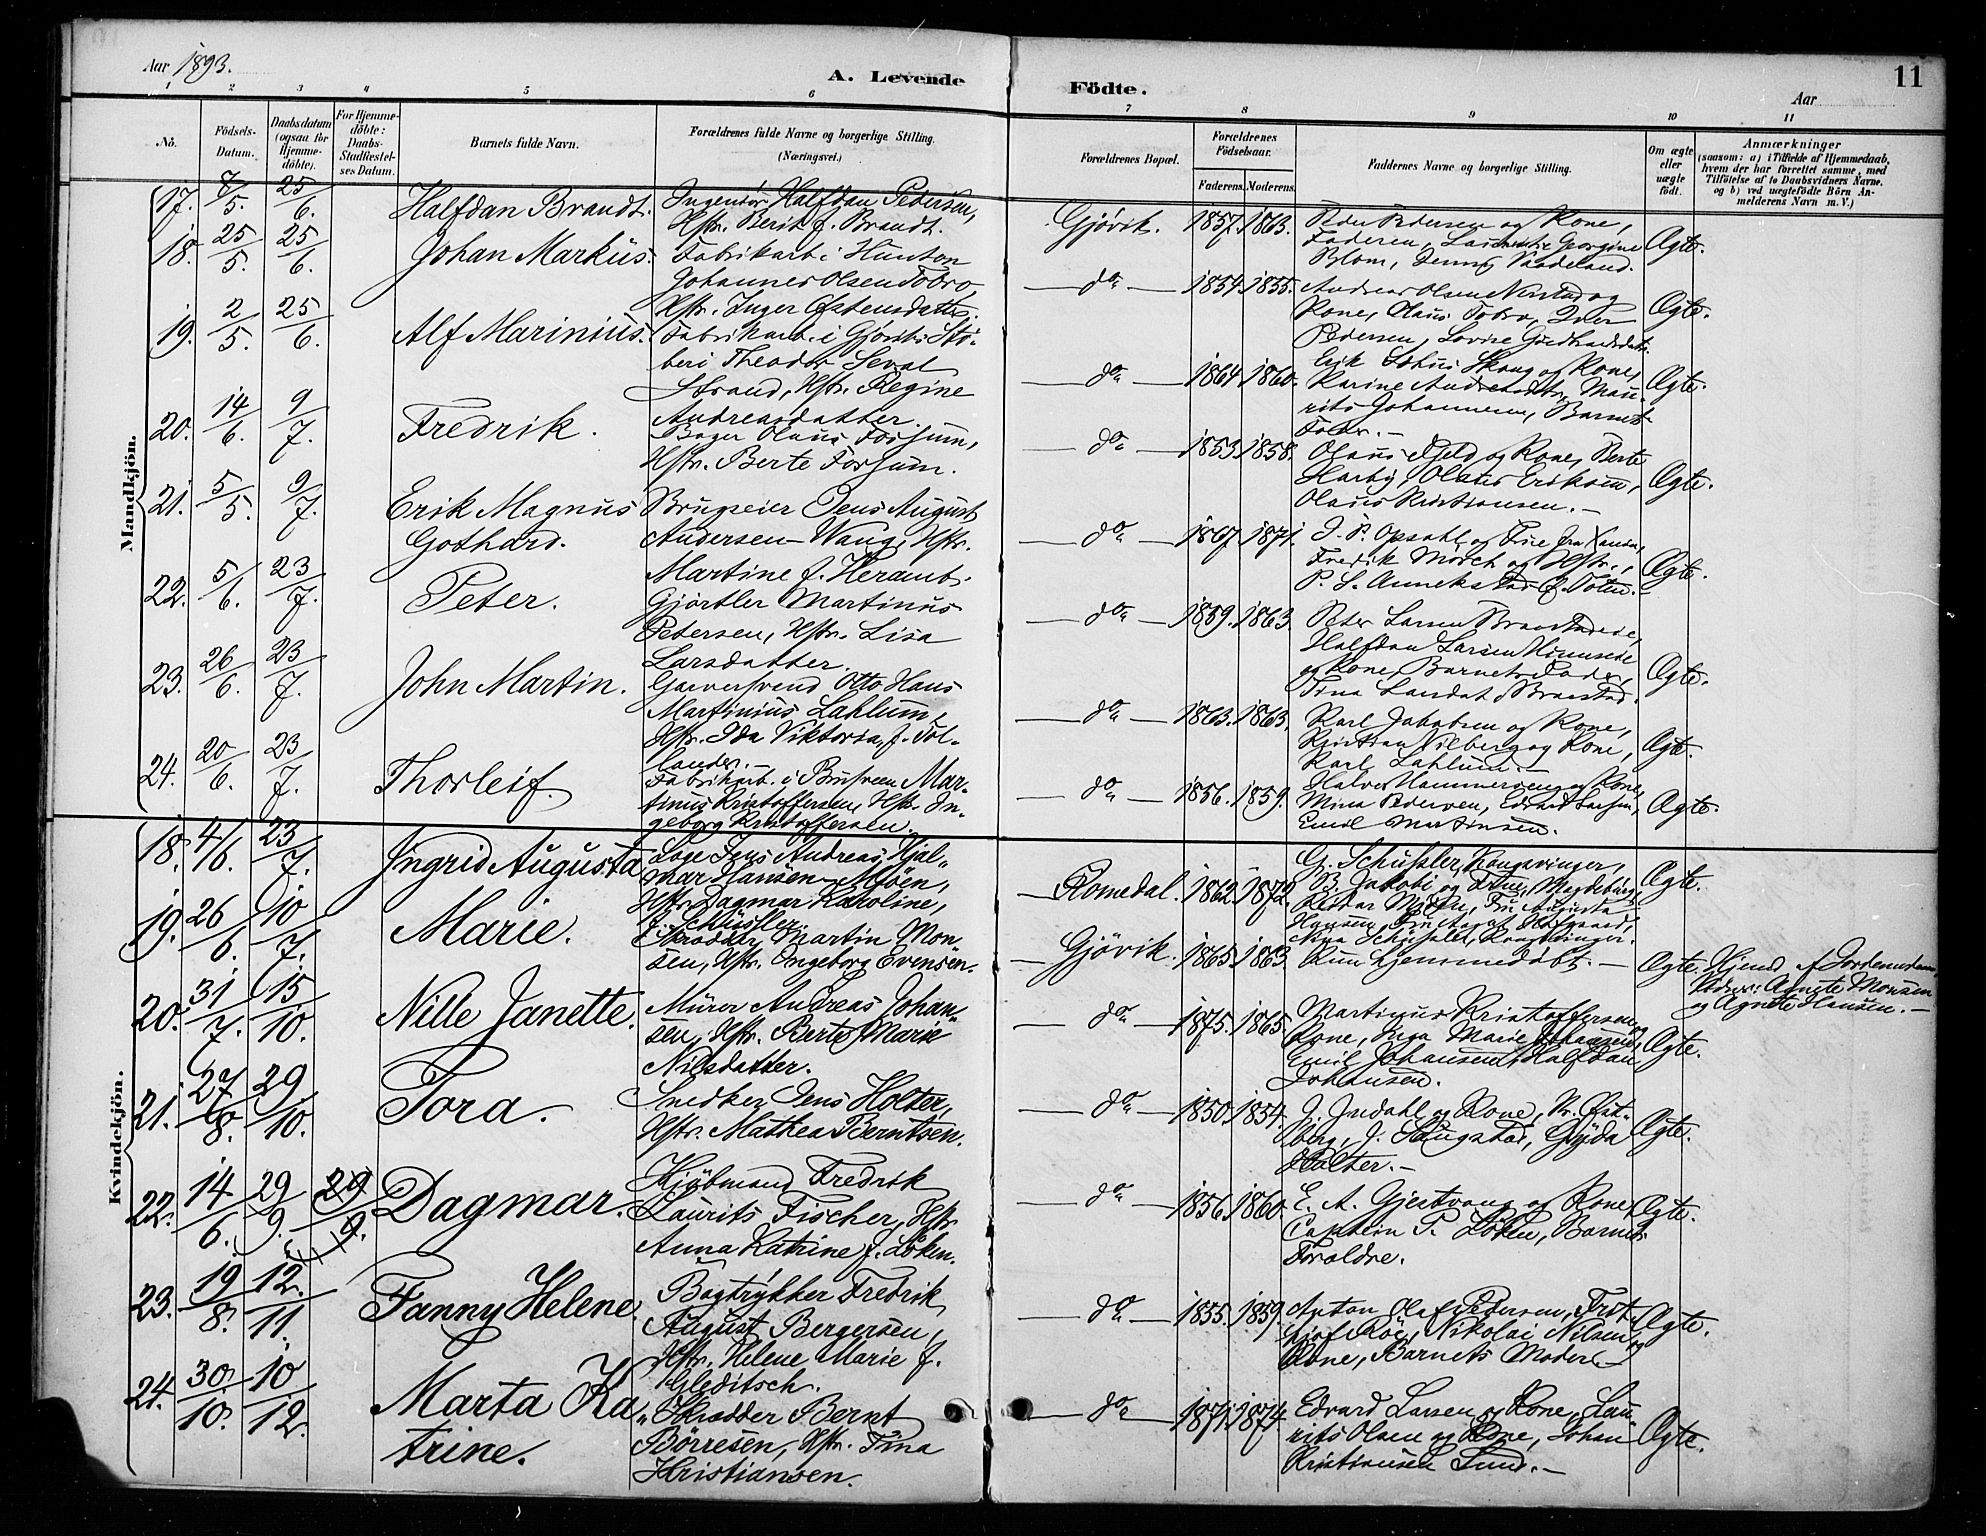 Aar 1893.
A. Levende Födte.
11
Aar
1 2 3 4 5 6 7 8 9 10 11
No.
Födsels-Datum.
Daabsdatum (ogsaa for Hjemme-döbte).
For Hjemme-döbte: Daabs-Stadfæstel-ses Datum.
Barnets fulde Navn.
Forældrenes fulde Navne og borgerlige Stilling. (Næringsvei.)
Forældrenes Bopæl.
Forældrenes Födselsaar.
Faderens. Moderens.
Faddernes Navne og borgerlige Stilling.
Om ægte eller uægte födt.
Anmærkninger (saasom: a) i Tilfælde af Hjemmedaab, hvem der har forrettet samme, med Tilföielse af to Daabsvidners Navne. og b) ved uægtefödte Börn Anmelderens Navn m. V.)
Mandkjön.
17. 7/5. 25/6. Halfdan Brandt. Ingeniör Halfdan Pedersen,
Hstr. Berit f. Brandt.
Gjövik. 1857. 1863. Peder Pedersen og Kone,
Faderen, Georgine
Blom, Jenny Vaadeland. Ægte.
18. 25/5. 25/6. Johan Markus. Fabrikarb. i Hunton
Johannes Olsen Fodro,
Hstr. Inger Østensdatter.
do 1854. 1855. Andreas Olsen og
Kone, Olaus Fodro, Iver
Pedersen, Lovise Gudbrandsdatter. Ægte.
19. 2/5. 25/6. Alf Marinius. Fabrikarb. i Gjöviks Stö-
beri Theodor Seval
Strand, Hstr. Regine
Andreasdatter.
do 1864. 1860. Erik Skoug og Kone,
Karine Andreasdatter, Mau-
rits Johannesen, Barnets
Fader. Ægte.
20. 14/6. 9/7. Fredrik. Bager Olaus Forsum,
Hstr. Berte Forsum.
do 1853. 1858. Olaus og Kone, Berte
Harby, Olaus Eriksen,
Olaus Kristiansen. Ægte.
21. 5/5. 9/7. Erik Magnus
Gothard. Brugseier Jens August
Andersen-Wang, Hstr.
Martine f. Heramb.
do 1867. 1871. J. P. Opsahl og Frue fra
Fredrik Mörch og Hstr.,
P. L. Annekstad Ø. Toten. Ægte.
22. 5/6. 23/7. Peter. Gjörtler Martinus
Petersen, Hstr. Lisa
Larsdatter.
do 1859. 1863. Peter Larsen
Halfdan Larsen
og Kone, Barnets Fader,
Tina Braastad. Ægte.
23. 26/6. 23/7. John Martin. Garversvend Otto Hans
Martinius Lahlum,
Hstr. Ida Viktoria, f. Tol-
lander.
do 1863. 1863. Karl Jakobsen og Kone,
Kristian Vilberg og Kone,
Karl Lahlum. Ægte.
24. 20/6. 23/7. Thorleif. Fabrikarb. i Brusveen Mar-
tinus Kristoffersen, Hstr. In-
geborg Kristoffersen.
do 1856. 1859. Halvor Hammersen og Kone,
Mina Pedersen, Edvard Larsen,
Emil Martinsen. Ægte.
Kvindekjön.
18. 4/6. 23/7. Ingrid Augusta Læge Jens Andreas Hjal-
mar Hansen-Möen,
Hstr. Dagmar Karoline,
f. Schüssler.
Romedal. 1862. 1872. G. Schüssler, Kongsvinger,
B. Jakobi og Frue, Magdeburg,
Reidar Möen, Frue Augusta
Hansen, Frue
Nina Schüssler, Kongsvinger. Ægte.
19. 26/6. 10/7. Marie. Skrædder Martin Mon-
sen, Hstr. Ingeborg Evensen.
Gjövik. 1865. 1863. Kun hjemmedöbt. Ægte. Hjemd. af Jordemoderen,
Vidner: Agnete Monsen
og Agnete Hansen.
20. 31/7. 15/10. Nille Janette. Murer Andreas Johan-
sen, Hstr. Berte Marie
Nilsdatter.
do 1875. 1865. Martinus Kristoffersen,
Kone, Inga Marie Johansen,
Emil Johansen, Halfdan
Johansen. Ægte.
21. 27/8. 29/10. Tora. Snedker Jens Holter,
Hstr. Mathea Berntsen.
do 1850. 1854. J. Indahl og Kone, Kr. Øst-
berg, J. Haugstad, Gyda
Holter. Ægte.
22. 14/6. 29/9. 29/9. Dagmar. Kjöbmand Fredrik
Laurits Fischer, Hstr.
Anna Katrine f. Löken.
do 1856. 1860. E. A. Gjestvang og Kone,
Captein P. Löken, Barnets
Foraldre. Ægte.
23. 19/8. 12/11. Fanny Helene. Bogtrykker Fredrik
August Bergersen,
Hstr. Helene Marie f.
Gleditsch.
do 1855. 1859. Anton Olaf Pedersen, Frit-
hjof Röe, Nikolai Nilsen og
Kone, Barnets Moder. Ægte.
24. 30/10. 10/12. Marta Ka
trine. Skrædder Bernt
Börresen, Hstr. Tina
Kristiansen.
do 1871. 1874. Edvard Larsen og Kone, Lau-
rits Olsen og Kone, Johan
Kristiansen Lund. Ægte.